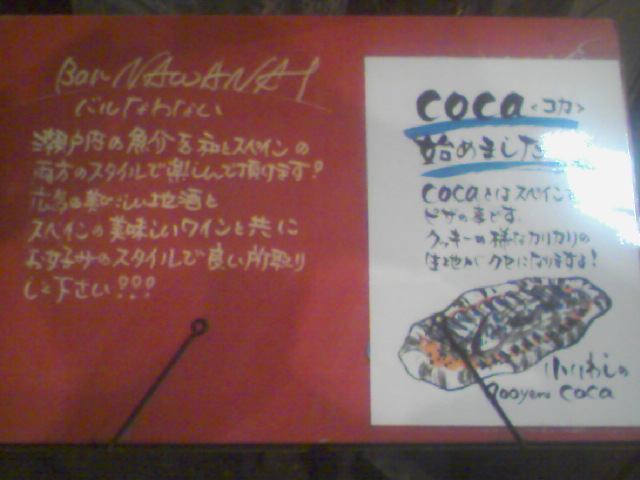 Bar NAWANAI
バルなわない
瀬戸内の魚介を和とスペインの
両方のスタイルで楽しんで頂けます!
広島の美味しい地酒と
スペインの美味しいワインと共に
お好みのスタイルで良い所取り
して下さい!!!
coca<コカ>
始めました
cocaとはスペイン
ピザの事です.
クッキーの様なカリカリの
生地がクセになりますよ!
小いわしの
900yen coca